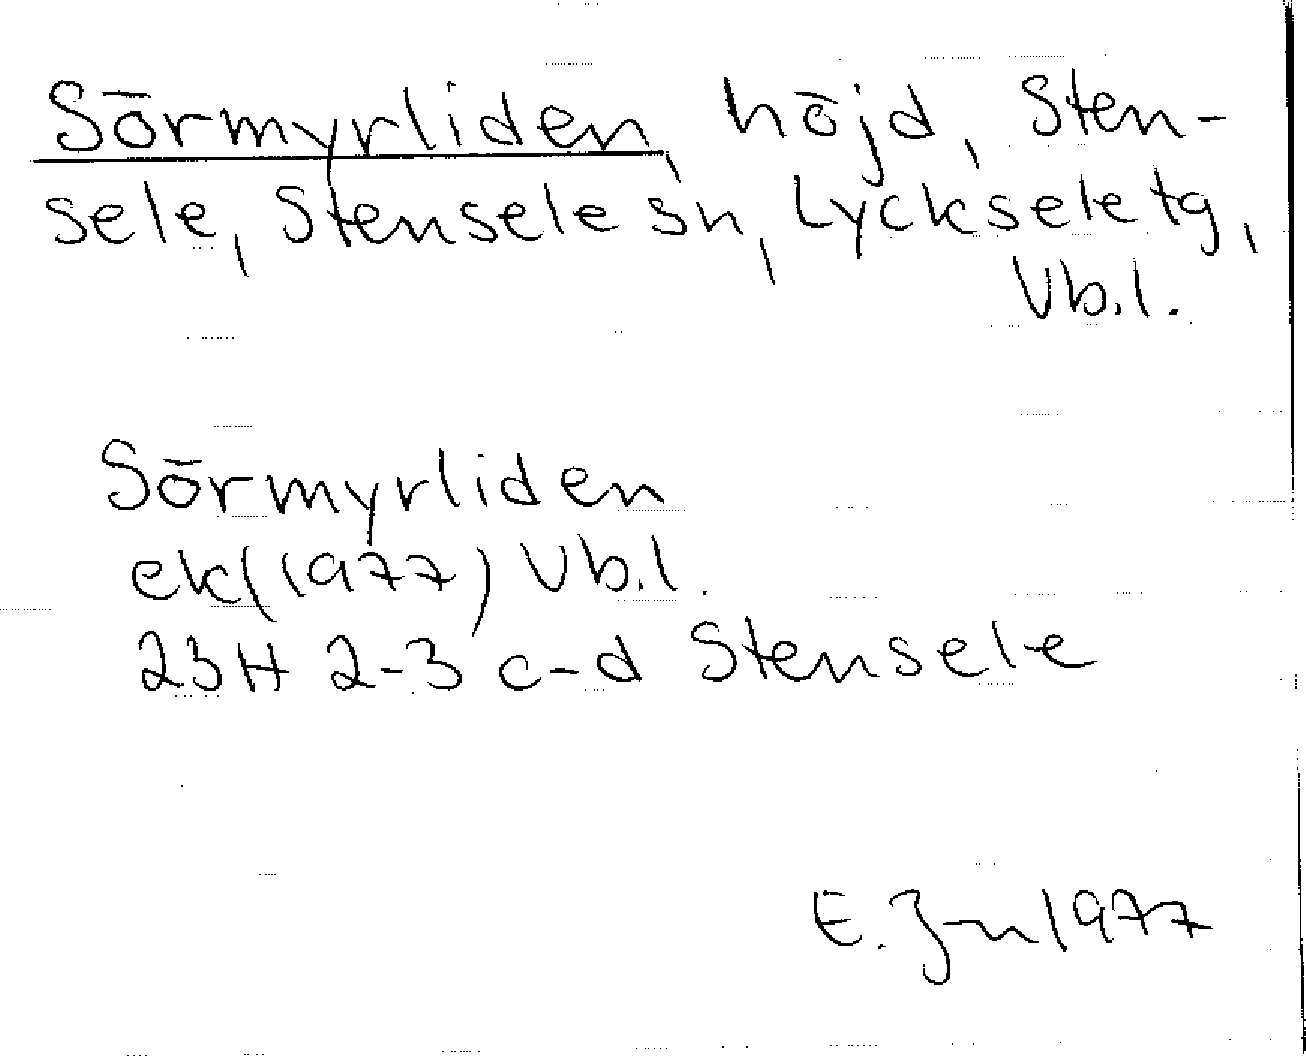 Sörmyrliden, höjd, Sten-
sele, Stensele sn, Lycksele tg,
Vb.l.
Sörmyrliden
ek (1977) Vb.l.
23H 2-3 c-d Stensele
E. 1977